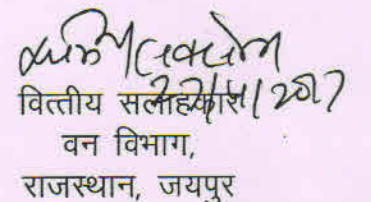 27/4/2017
वित्तीय सलाहकार
वन विभाग,
राजस्थान, जयपुर